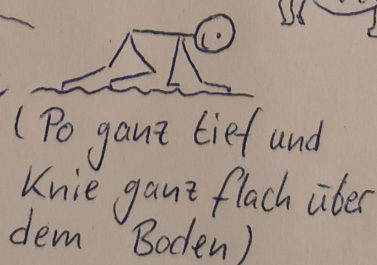 (Po ganz tief und
Knie ganz flach über
dem Boden)